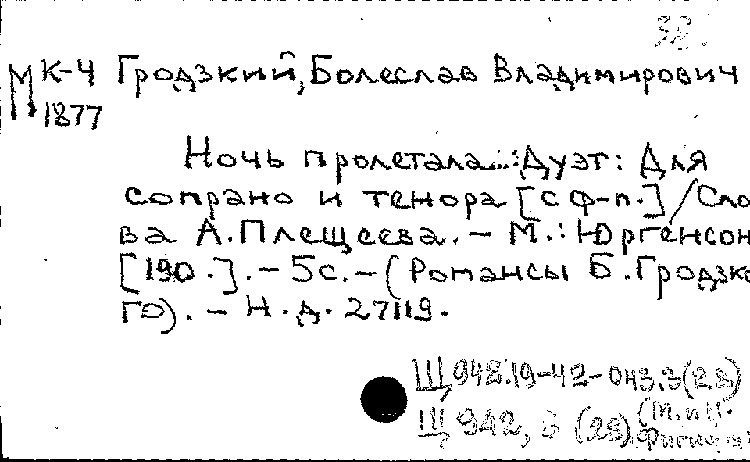 38.
М К-4 Гродзкий, Болеслав Владимирович
1877
Ночь пролетала...: Дуэт: Для
сопрано и тенора [с ф-п.] / Сло
ва А. Плещеева. – М.: Юргенсон
[190 .]. – 5с. – (Романсы Б. Гродзко
го). – Н.д. 27119.
Щ 948.19-42-0н3.3(2в)
Щ 942,